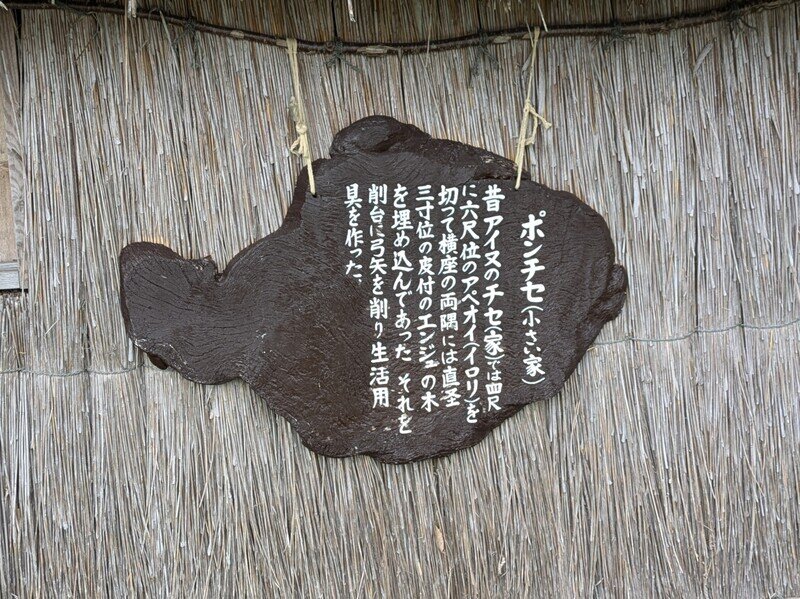 ポンチセ(小さい家)
昔アイヌのチセ(家)では四尺
に六尺位のアペオイ(イロリ)を
切って横座の両隅には直圣
三寸位の皮付のエンジュの木
を埋め込んであった。それを
削台に弓矢を削り生活用
具を作った、